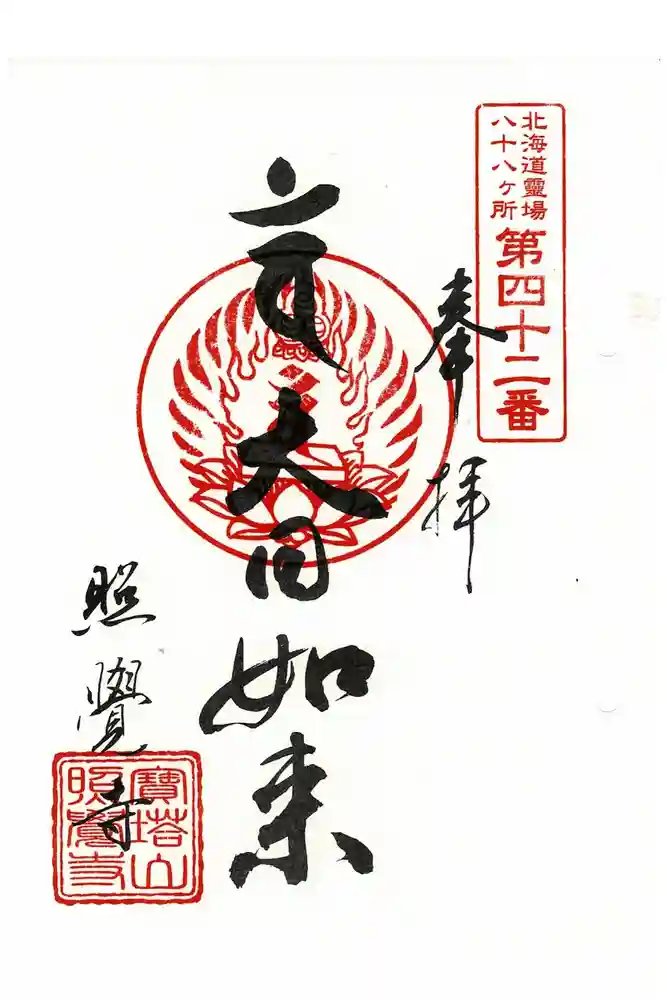 北海道靈場
八十八ヶ所
第四十二番
奉拝
大日如来
照覺寺
寶塔山
照覺寺